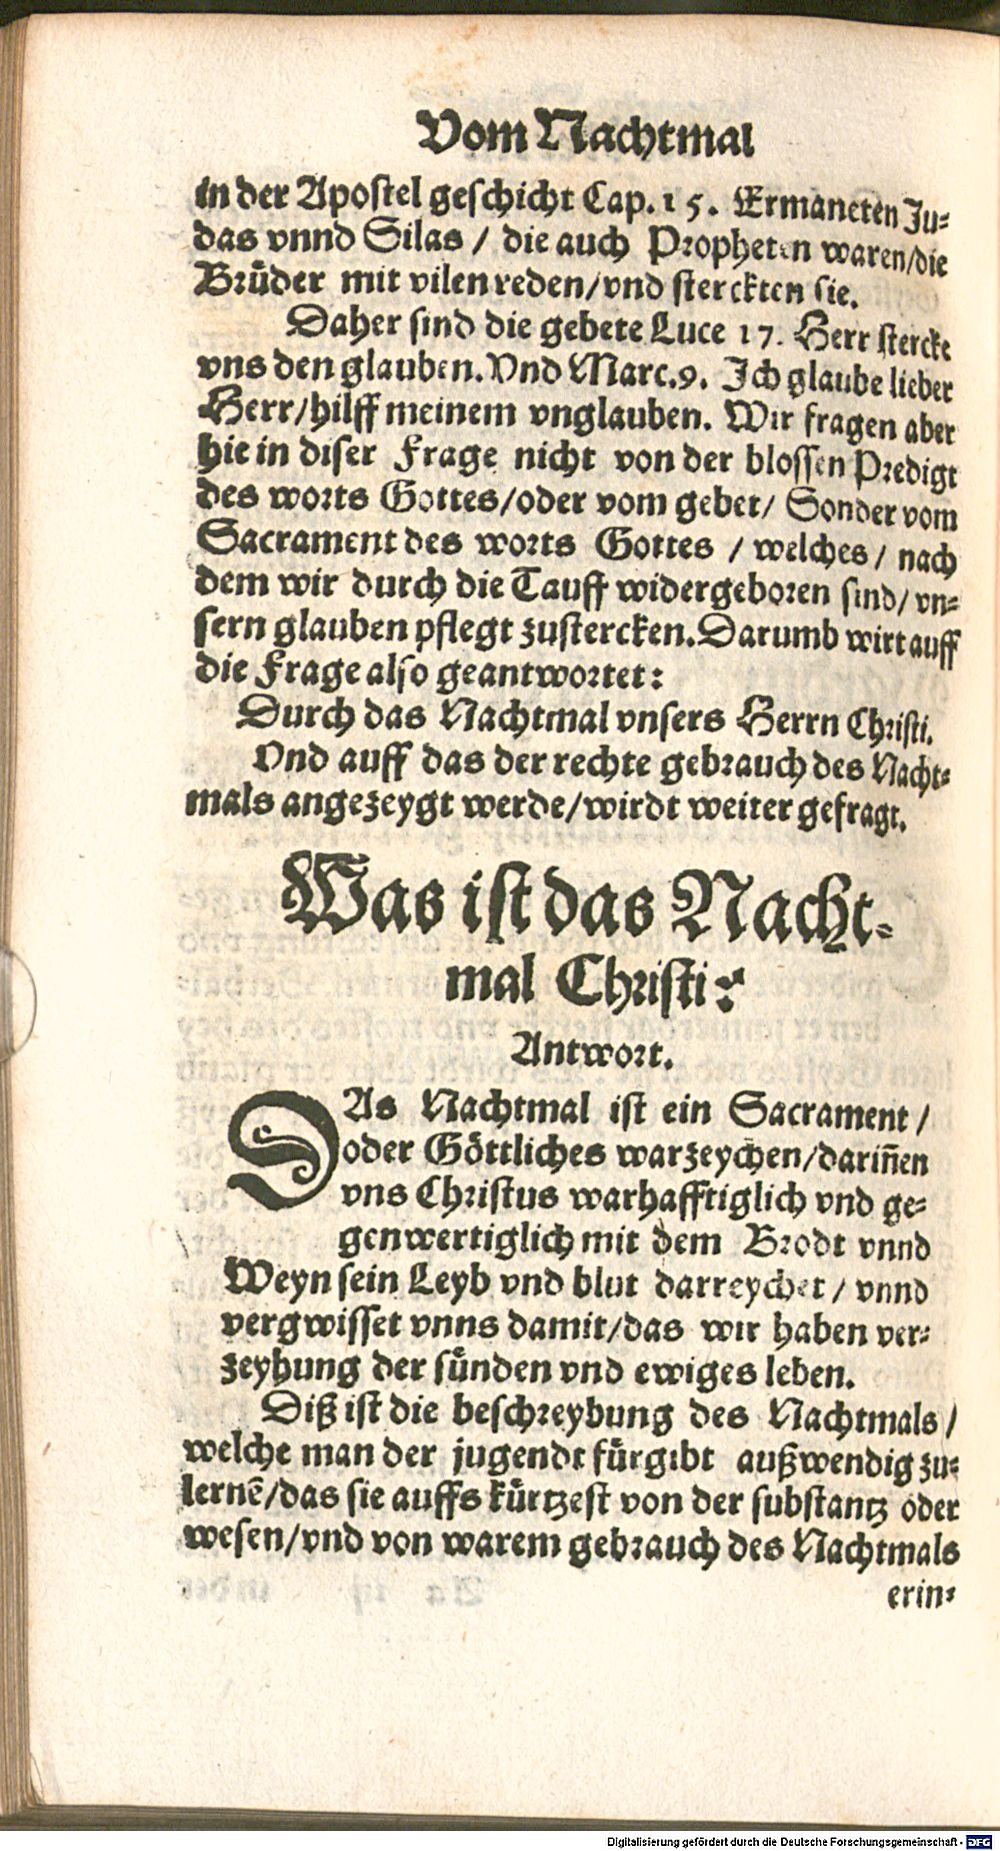 Vom Nachtmal
in der Apostel geschicht Cap. 15. Ermaneten Ju-
das vnnd Silas / die auch Propheten waren/die
Brüder mit vilen reden/vnd sterckten sie.
Daher sind die gebete Luce 17. Herr stercke
vns den glauben. Vnd Marc.9. Ich glaube lieber
Herr/hilff meinem vnglauben. Wir fragen aber
hie in diser Frage nicht von der blossen Predigt
des worts Gottes/oder vom gebet/ Sonder vom
Sacrament des worts Gottes / welches/ nach
dem wir durch die Tauff widergeboren sind/ vn-
sern glauben pflegt zustercken. Darumb wirt auff
die Frage also geantwortet:
Durch das Nachtmal vnsers Herrn Christi.
Vnd auff das der rechte gebrauch des Nacht-
mals angezeygt werde/wirdt weiter gefragt.
Was ist das Nacht-
mal Christi?
Antwort.
DAs Nachtmal ist ein Sacrament /
oder Göttliches warzeychen/dariñen
vns Christus warhafftiglich vnd ge-
genwertiglich mit dem Brodt vnnd
Weyn sein Leyb vnd blut darreychet / vnnd
vergwisset vnns damit/das wir haben ver-
zeyhung der sünden vnd ewiges leben.
Diß ist die beschreybung des Nachtmals /
welche man der jugendt fürgibt außwendig zu-
lernẽ/das sie auffs kürtzest von der substantz oder
wesen/vnd von warem gebrauch des Nachtmals
erin-
Digitalisierung gefördert durch die Deutsche Forschungsgemeinschaft - DFG